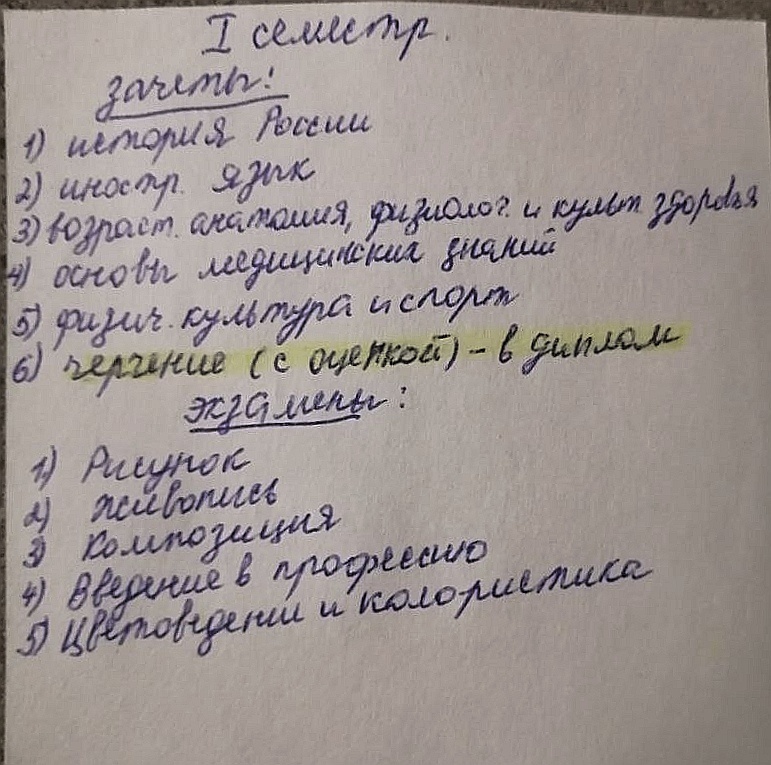 I семестр.
зачеты:
1) история России
2) иностр. язык
3) возраст. анатомия, физиолог. и культ. здоровья
4) основы медицинских знаний
5) физич. культура и спорт
6) черчение (с оценкой) - в диплом
экзамены:
1) Рисунок
2) живопись
3) Композиция
4) Введение в профессию
5) Цветоведении и колористика